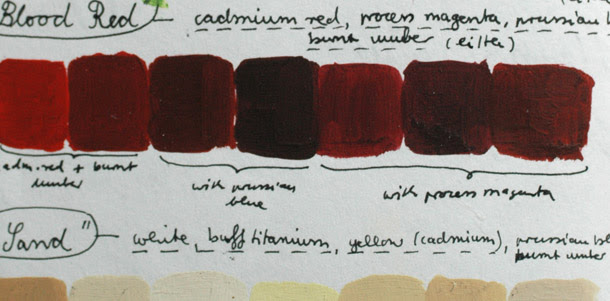 Blood Red
cadmium red, process magenta, prussian b
burnt umber (either)
adm. red + burnt
umber
with prussian
blue
with process magenta
"Sand"
white, buff titanium, yellow (cadmium), prussian bl
burnt umber